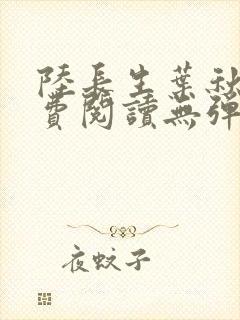 陸長生葉秋
費閱讀無彈
夜蚊子